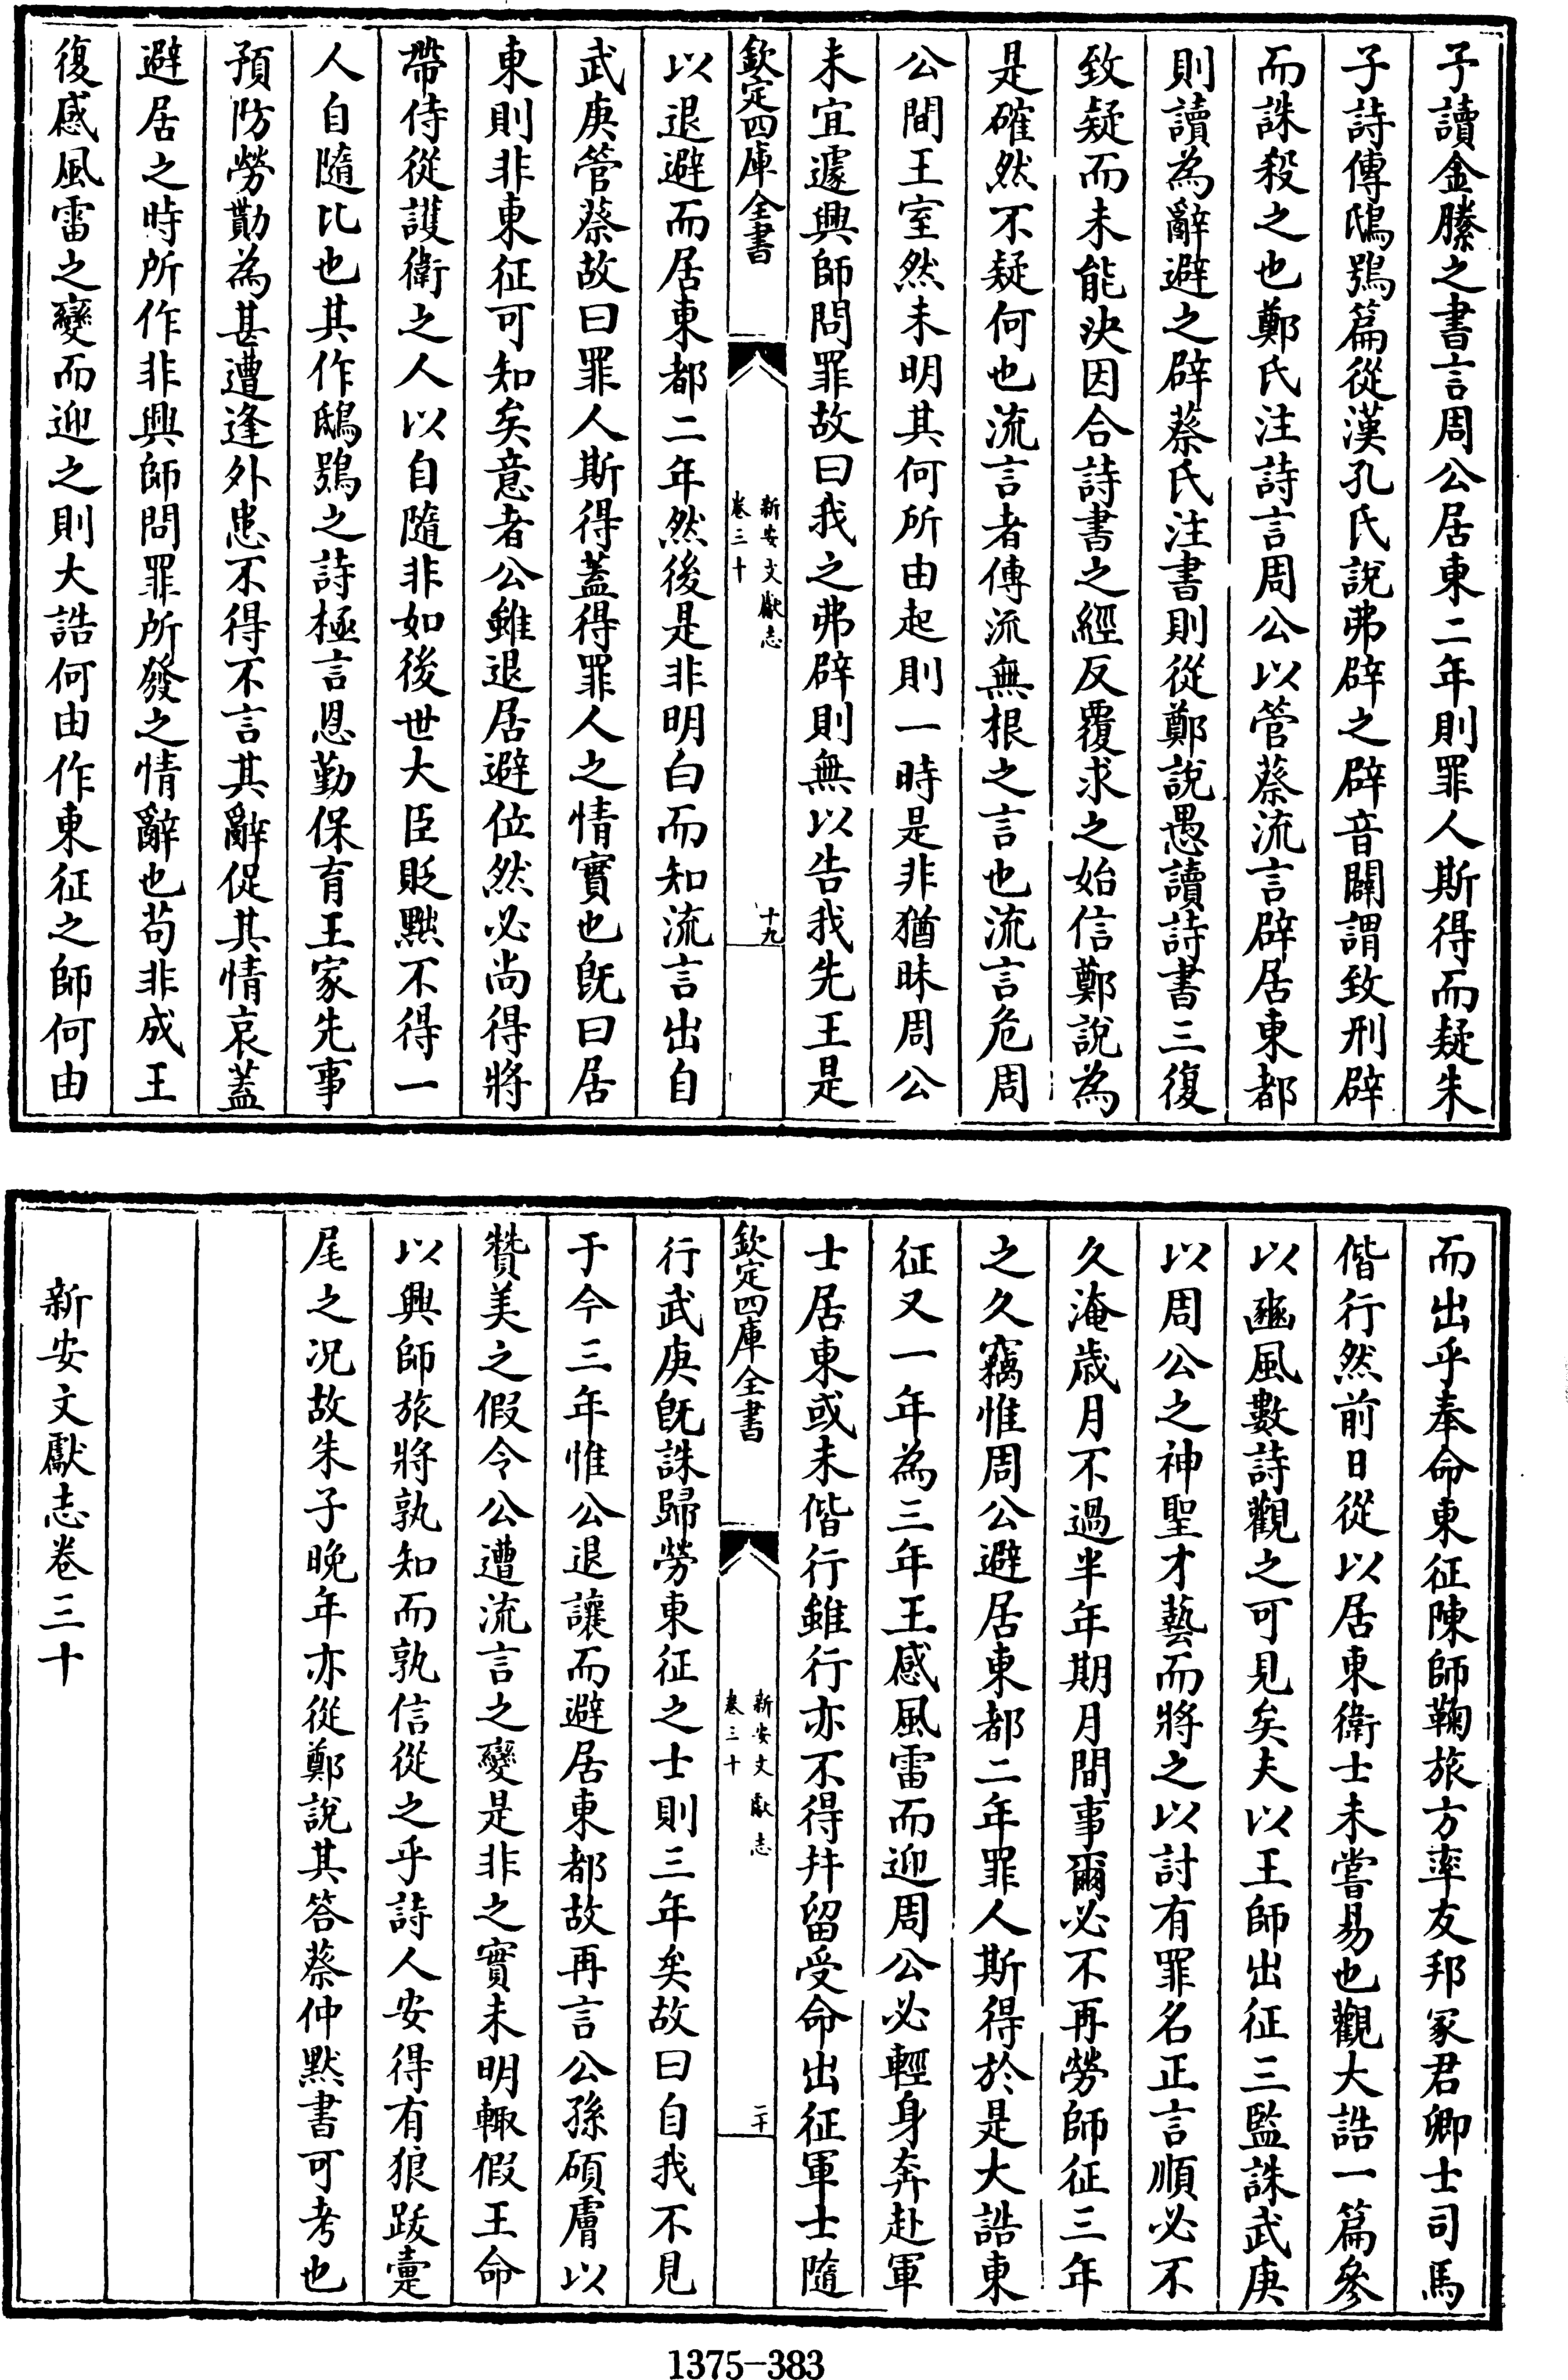 予讀金縢之書言周公居東二年則罪人斯得而疑朱
子詩傳鴟鴞篇從漢孔氏說弗辟之辟音闢謂致刑辟
而誅殺之也鄭氏注詩言周公以管蔡流言辟居東都
則讀為辭避之辟蔡氏注書則從鄭說愚讀詩書三復
致疑而未能決因合詩書之經反覆求之始信鄭說為
是確然不疑何也流言者傳流無根之言也流言危周
公間王室然未明其何所由起則一時是非猶昧周公
未宜遽興師問罪故曰我之弗辟則無以告我先王是
欽定四庫全書
新安文獻志
卷三十
十九
以退避而居東都二年然後是非明白而知流言出自
武庚管蔡故曰罪人斯得蓋得罪人之情實也旣曰居
東則非東征可知矣意者公雖退居避位然必尚得將
帶侍從護衛之人以自隨非如後世大臣貶黜不得一
人自隨比也其作鴟鴞之詩極言恩勤保育王家先事
預防勞勩為甚遭逢外患不得不言其辭促其情哀蓋
避居之時所作非興師問罪所發之情辭也苟非成王
復感風雷之變而迎之則大誥何由作東征之師何由
而出乎奉命東征陳師鞠旅方率友邦冢君卿士司馬
偕行然前日從以居東衛士未嘗易也觀大誥一篇參
以豳風數詩觀之可見矣夫以王師出征三監誅武庚
以周公之神聖才藝而將之以討有罪名正言順必不
久淹歲月不過半年期月間事爾必不再勞師征三年
之久竊惟周公避居東都二年罪人斯得於是大誥東
征又一年為三年王感風雷而迎周公必輕身奔赴軍
士居東或未偕行雖行亦不得幷留受命出征軍士隨
欽定四庫全書
新安文獻志
卷三十
二十
行武庚旣誅歸勞東征之士則三年矣故曰自我不見
于今三年惟公退讓而避居東都故再言公孫碩膚以
贊美之假令公遭流言之變是非之實未明輒假王命
以興師旅將孰知而孰信從之乎詩人安得有狼跋疐
尾之况故朱子晚年亦從鄭說其答蔡仲默書可考也
新安文獻志卷三十
1375-383